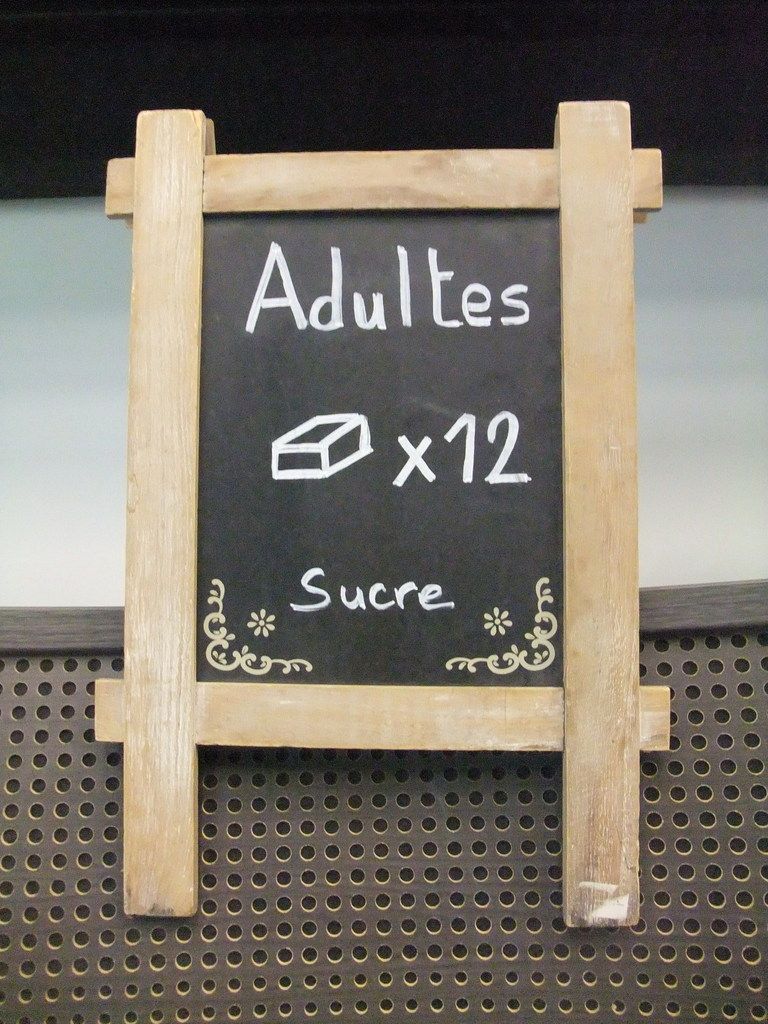 Adultes
x12
Sucre